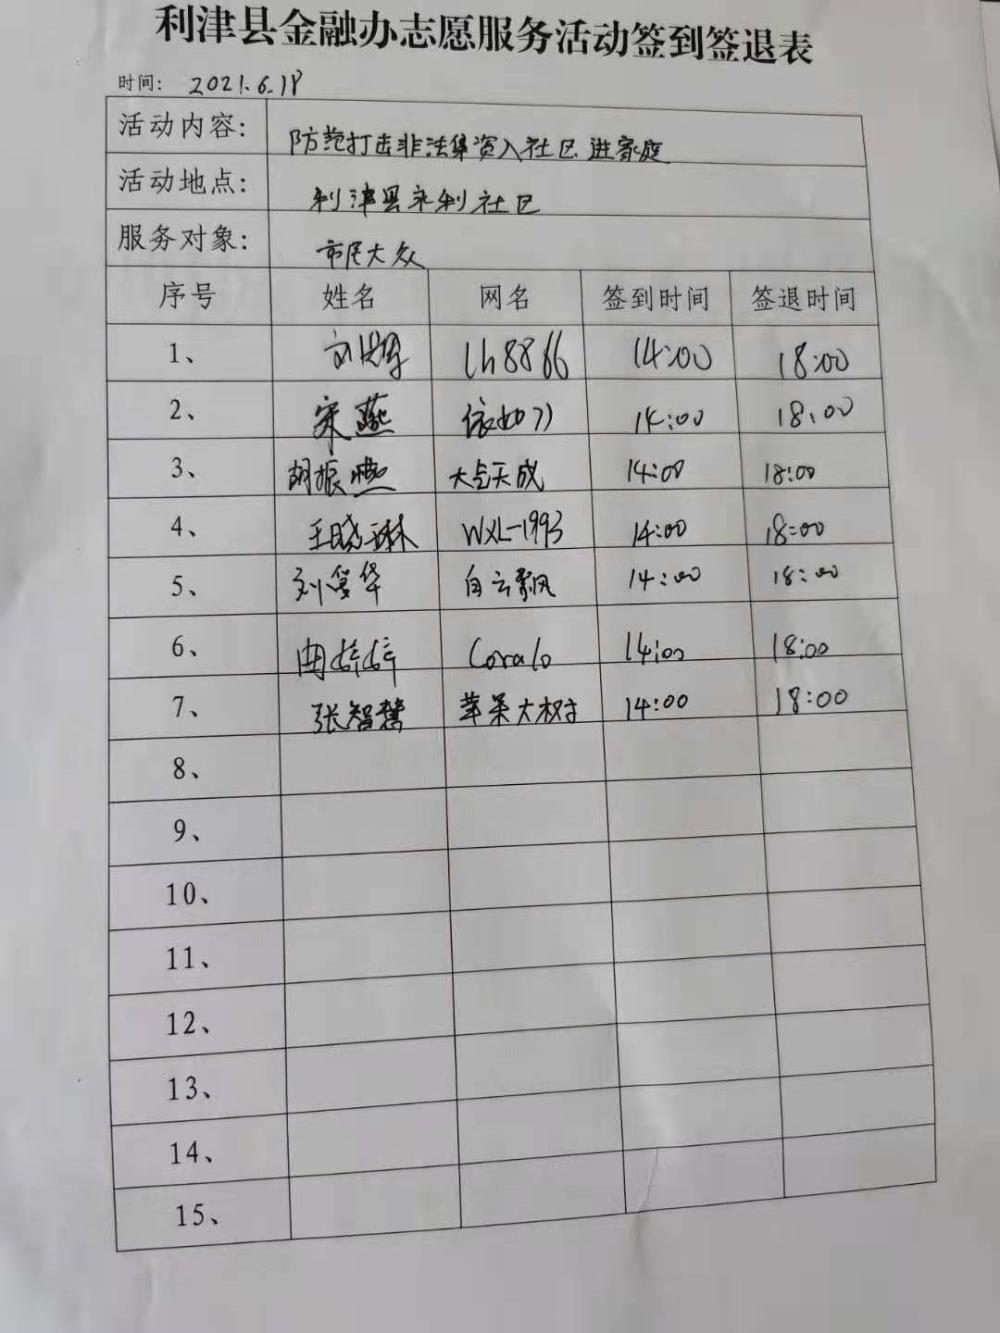 利津县金融办志愿服务活动签到签退表
时间: 2021.6.18
活动内容: 防范打击非法集资入社区 进家庭
活动地点: 利津县永利社区
服务对象: 市民大众
序号 姓名 网名 签到时间 签退时间
1、 刘 lh8866 14:00 18:00
2、 宋燕 14:00 18:00
3、 胡振燃 大占天成 14:00 18:00
4、 王晓琳 WXL-1993 14:00 18:00
5、 刘爱华 白云飘 14:00 18:00
6、 曲婷婷 Coralo 14:00 18:00
7、 张智慧 苹果大树 14:00 18:00
8、
9、
10、
11、
12、
13、
14、
15、